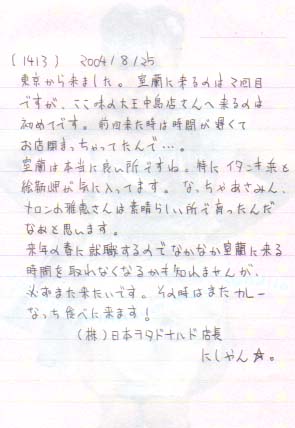 (1413) 2004/8/25
東京から来ました。室蘭に来るのは2回目
ですが、ここ味の大王中島店さんへ来るのは
初めてです。前回来た時は時間が遅くて
お店閉まっちゃってたんで…。
室蘭は本当に良い所ですね。特にイタンキ浜と
絵鞆岬が気に入ってます。なっちゃあさみん、
メロンのさんは素晴らしい所で育ったんだ
なあと思います。
来年の春に就職するのでなかなか室蘭に来る
時間を取れなくなるかも知れませんが、
必ずまた来たいです。その時はまたカレー
なっち食べに来ます!
(株)日本ラダドナルド店長
にしやん☆。